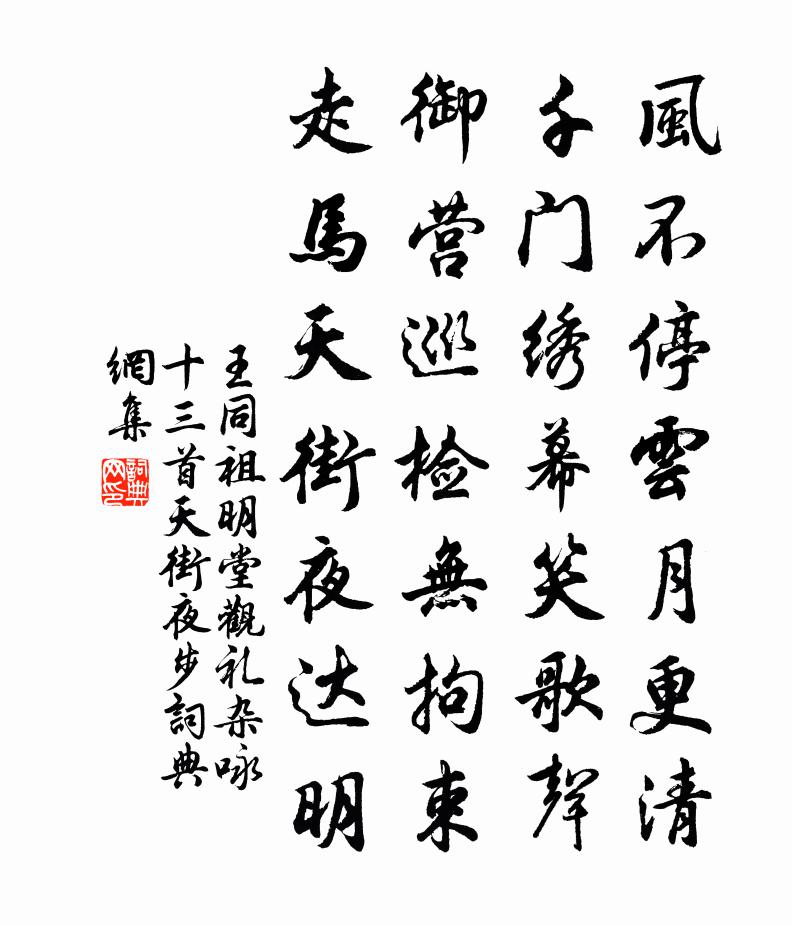 風不停雲月更清
千门绣幕笑歌聲
御营巡检無拘束
走馬天街夜达明
王同祖明堂觀礼杂咏
十三首天街夜步詞典
網集
詞典网印